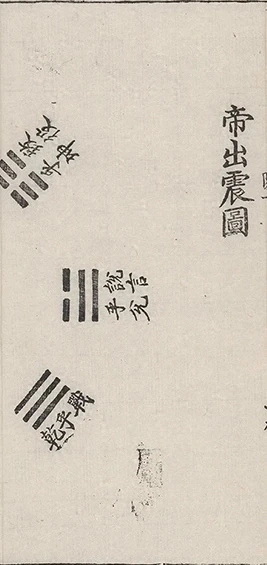 帝出震圖
致役
乎坤
說言
乎兌
戰乎
乾